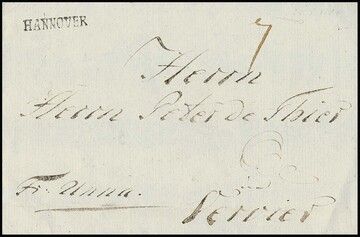 HANNOVER
7
Herrn
Herrn Peter de Thier
Fr. Unna.
Vervier